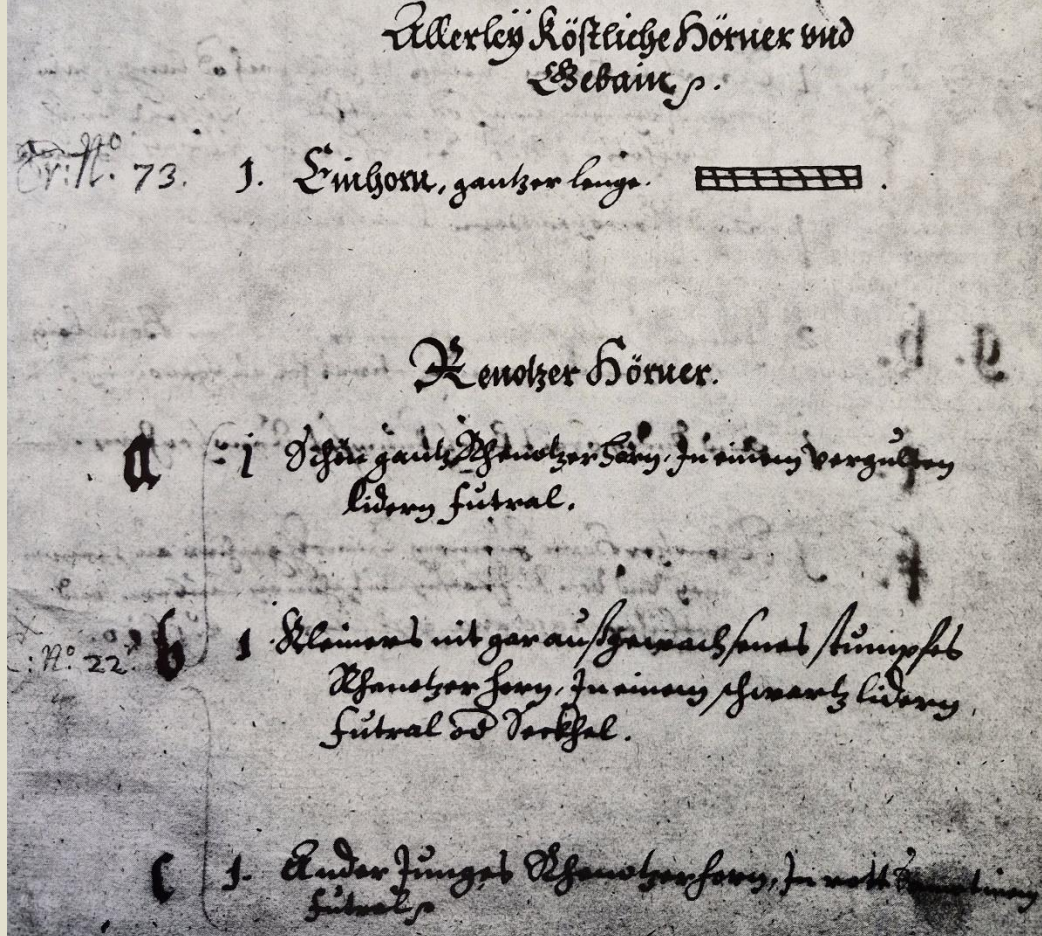 Allerley Köstliche Hörner vnd
Gebain
Nº. 73. 1. Einhorn, gantzer lenge.
Renotzer Hörner.
a 1 Schön gantz Rhenotzer horn, In einem vergulten
lidern futral.
b Nº. 22. 1 Kleiners nit gar außgewachsenes stumpfes
Rhenotzer horn, In einem schwartz lidern
futral od Seckhel.
c 1. Ander Junges Rhenotzer horn, In rott
futral